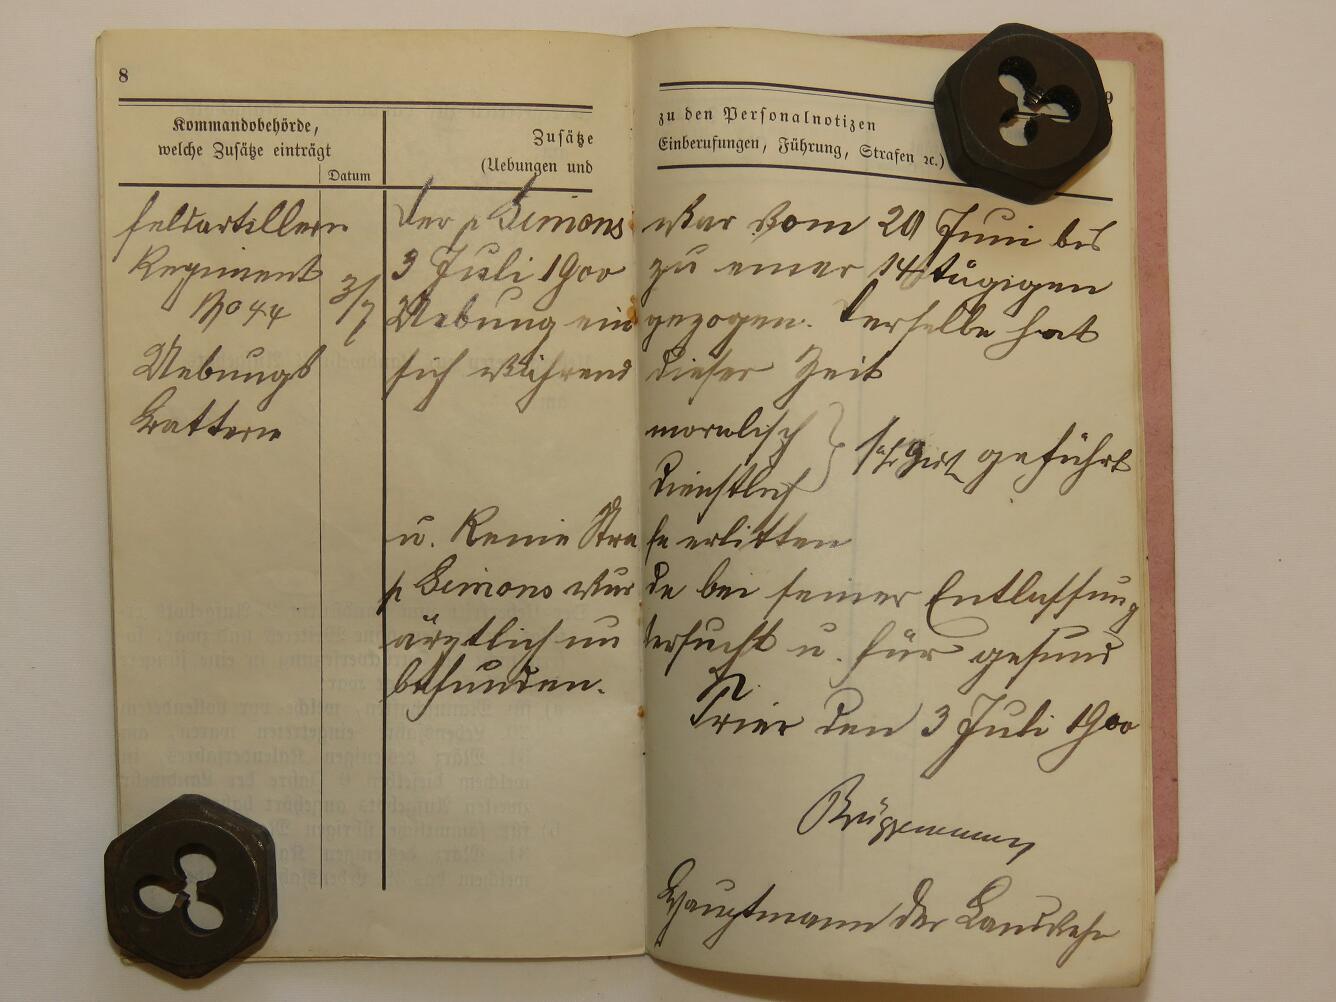 8
9
Kommandobehörde,
welche Zusätze einträgt
Datum
Zusätze
(Uebungen und
zu den Personalnotizen
Einberufungen, Führung, Strafen ⁊c.)
Feldartillerie
Regiment
No 44
Uebungs
Batterie
3/7
Der p Simons war vom 20 Juni bis
3 Juli 1900 zu einer 14 tägigen
Uebung eingezogen. Derselbe hat
sich während dieser Zeit
moralisch
dienstlich } sehr gut geführt
u. Keine Strafe erlitten
p Simons wurde bei seiner Entlassung
ärztlich untersucht u. für gesund
befunden.
Trier den 3 Juli 1900
Hauptmann der Landwehr